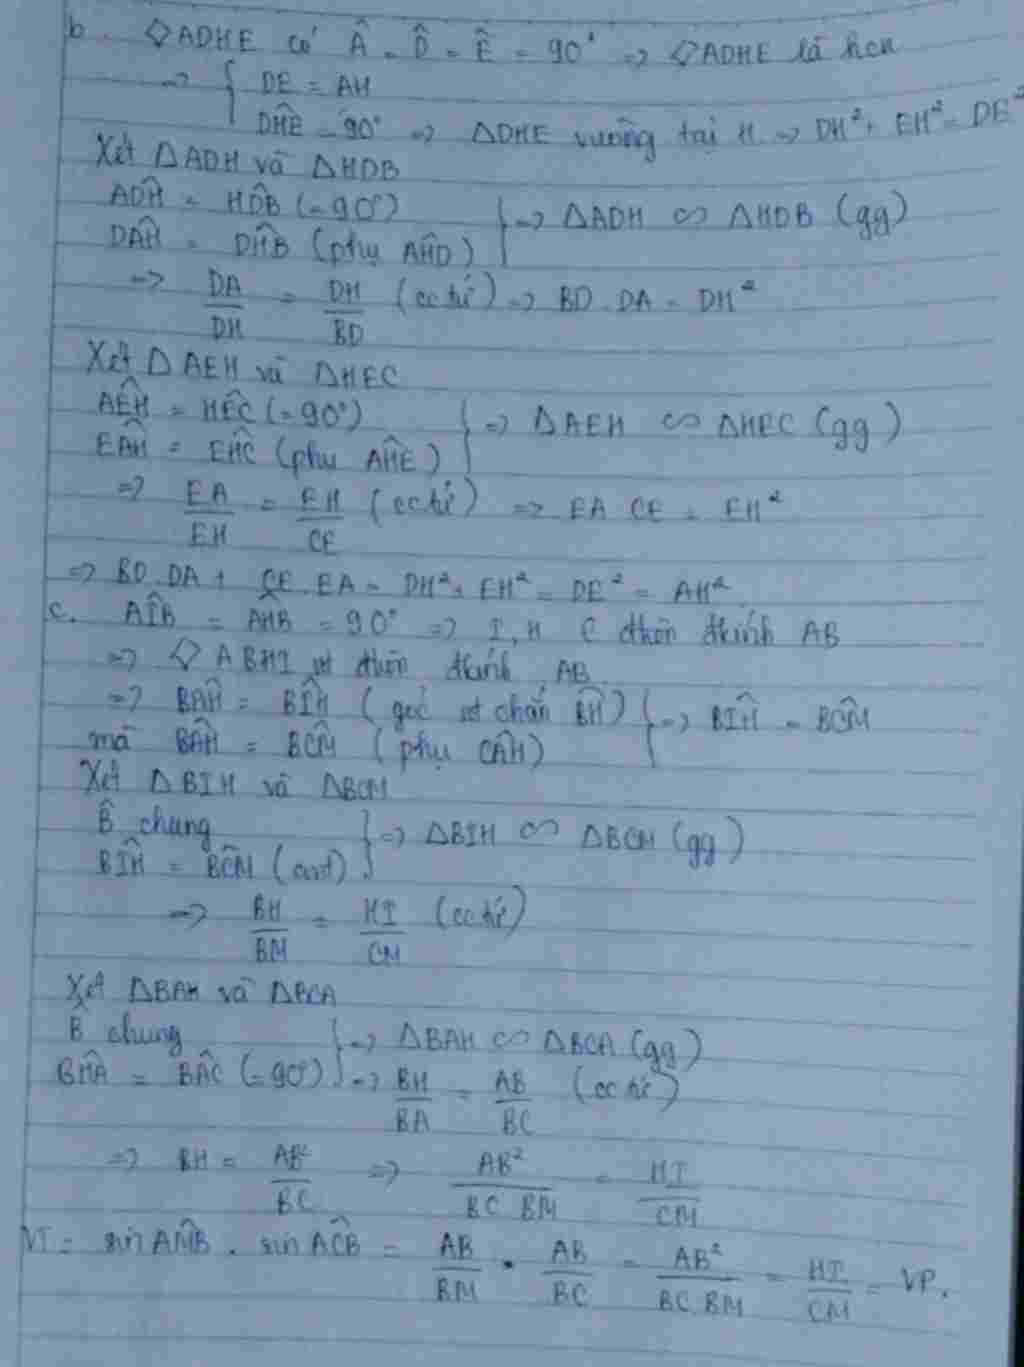 b. ◇ADHE có Â = D̂ = Ê = 90° => ◇ADHE là hcn
=> { DE = AH
DĤE = 90° => ΔDHE vuông tại H => DH² + EH² = DE²
Xét ΔADH và ΔHDB
AD̂H = HD̂B (= 90°)
DÂH = DĤB (phụ AĤD) } => ΔADH ∽ ΔHDB (gg)
=> DA/DH = DH/BD (cctứ) => BD.DA = DH²
Xét ΔAEH và ΔHEC
AÊH = HÊC (= 90°)
EÂH = EĤC (phụ AĤE) } => ΔAEH ∽ ΔHEC (gg)
=> EA/EH = EH/CE (cctứ) => EA.CE = EH²
=> BD.DA + CE.EA = DH² + EH² = DE² = AH²
c. AÎB = AĤB = 90° => I, H ∈ đtròn đkính AB
=> ◇ABHI nt đtròn đkính AB
=> BÂH = BÎH (góc nt chắn BH)
mà BÂH = BĈM (phụ CÂH) } => BÎH = BĈM
Xét ΔBIH và ΔBCM
B̂ chung
BÎH = BĈM (cmt) } => ΔBIH ∽ ΔBCM (gg)
=> BH/BM = HI/CM (cctứ)
Xét ΔBAH và ΔBCA
B̂ chung } => ΔBAH ∽ ΔBCA (gg)
BĤA = BÂC (= 90°) => BH/BA = AB/BC (cctứ)
=> BH = AB²/BC => AB²/BC.BM = HI/CM
VT = sin AM̂B . sin AĈB = AB/BM . AB/BC = AB²/BC.BM = HI/CM = VP.